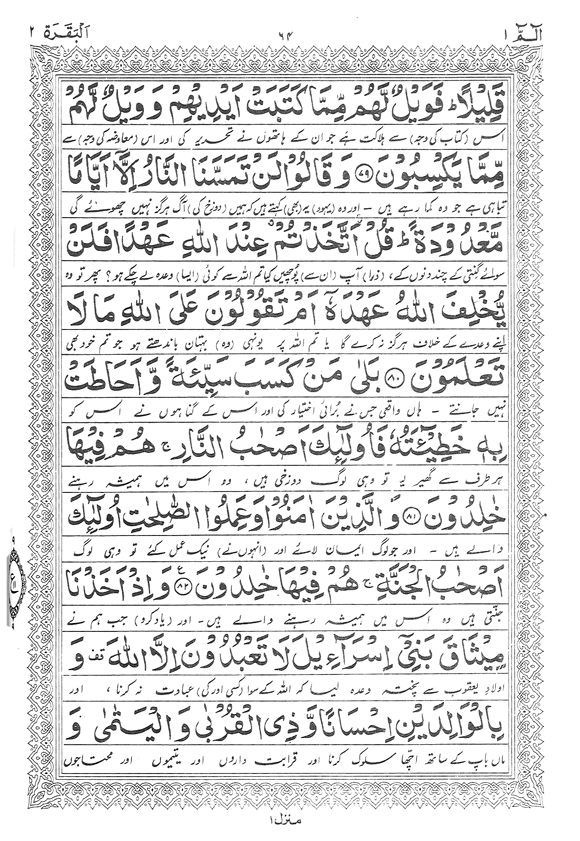 الٓمّٓ ١ ٦٤ اَلْبَقَرَة ٢
قَلِيْلًا ؕ فَوَيْلٌ لَّهُمْ مِّمَّا كَتَبَتْ اَيْدِيْهِمْ وَ وَيْلٌ لَّهُمْ
اس (کتاب کی وجہ) سے ہلاکت ہے جو ان کے ہاتھوں نے تحریر کی اور اس (معاوضہ کی وجہ) سے
مِّمَّا يَكْسِبُوْنَ ﴿٧٩﴾ وَ قَالُوْا لَنْ تَمَسَّنَا النَّارُ اِلَّاۤ اَيَّامًا
تباہی ہے جو وہ کما رہے ہیں ۔ اور وہ (یہود) یہ (بھی) کہتے ہیں کہ ہمیں (دوزخ کی) آگ ہرگز نہیں چھوئے گی
مَّعْدُوْدَةً ؕ قُلْ اَتَّخَذْتُمْ عِنْدَ اللّٰهِ عَهْدًا فَلَنْ
سوائے گنتی کے چند دنوں کے، (ذرا) آپ (ان سے) پوچھیں کیا تم اللہ سے کوئی (ایسا) وعدہ لے چکے ہو؟ پھر تو وہ
يُّخْلِفَ اللّٰهُ عَهْدَهٗۤ اَمْ تَقُوْلُوْنَ عَلَى اللّٰهِ مَا لَا
اپنے وعدے کے خلاف ہرگز نہ کرے گا یا تم اللہ پر یونہی (وہ) بہتان باندھتے ہو جو تم خود بھی
تَعْلَمُوْنَ ﴿٨٠﴾ بَلٰى مَنْ كَسَبَ سَيِّئَةً وَّ اَحَاطَتْ
نہیں جانتے ۔ ہاں واقعی جس نے برائی اختیار کی اور اس کے گناہوں نے اس کو
بِهٖ خَطِيْٓئَتُهٗ فَاُولٰٓئِكَ اَصْحٰبُ النَّارِ ۚ هُمْ فِيْهَا
ہر طرف سے گھیر لیا تو وہی لوگ دوزخی ہیں، وہ اس میں ہمیشہ رہنے
خٰلِدُوْنَ ﴿٨١﴾ وَ الَّذِيْنَ اٰمَنُوْا وَ عَمِلُوا الصّٰلِحٰتِ اُولٰٓئِكَ
والے ہیں ۔ اور جو لوگ ایمان لائے اور (انہوں نے) نیک عمل کئے تو وہی لوگ
اَصْحٰبُ الْجَنَّةِ ۚ هُمْ فِيْهَا خٰلِدُوْنَ ﴿٨٢﴾ وَ اِذْ اَخَذْنَا
جنتی ہیں وہ اس میں ہمیشہ رہنے والے ہیں ۔ اور (یاد کرو) جب ہم نے
مِيْثَاقَ بَنِيْٓ اِسْرَآءِيْلَ لَا تَعْبُدُوْنَ اِلَّا اللّٰهَ قف وَ
اولادِ یعقوب سے پختہ وعدہ لیا کہ اللہ کے سوا (کسی اور کی) عبادت نہ کرنا، اور
بِالْوَالِدَيْنِ اِحْسَانًا وَّ ذِي الْقُرْبٰى وَ الْيَتٰمٰى وَ
ماں باپ کے ساتھ اچھا سلوک کرنا اور قرابت داروں اور یتیموں اور محتاجوں
منزل ١